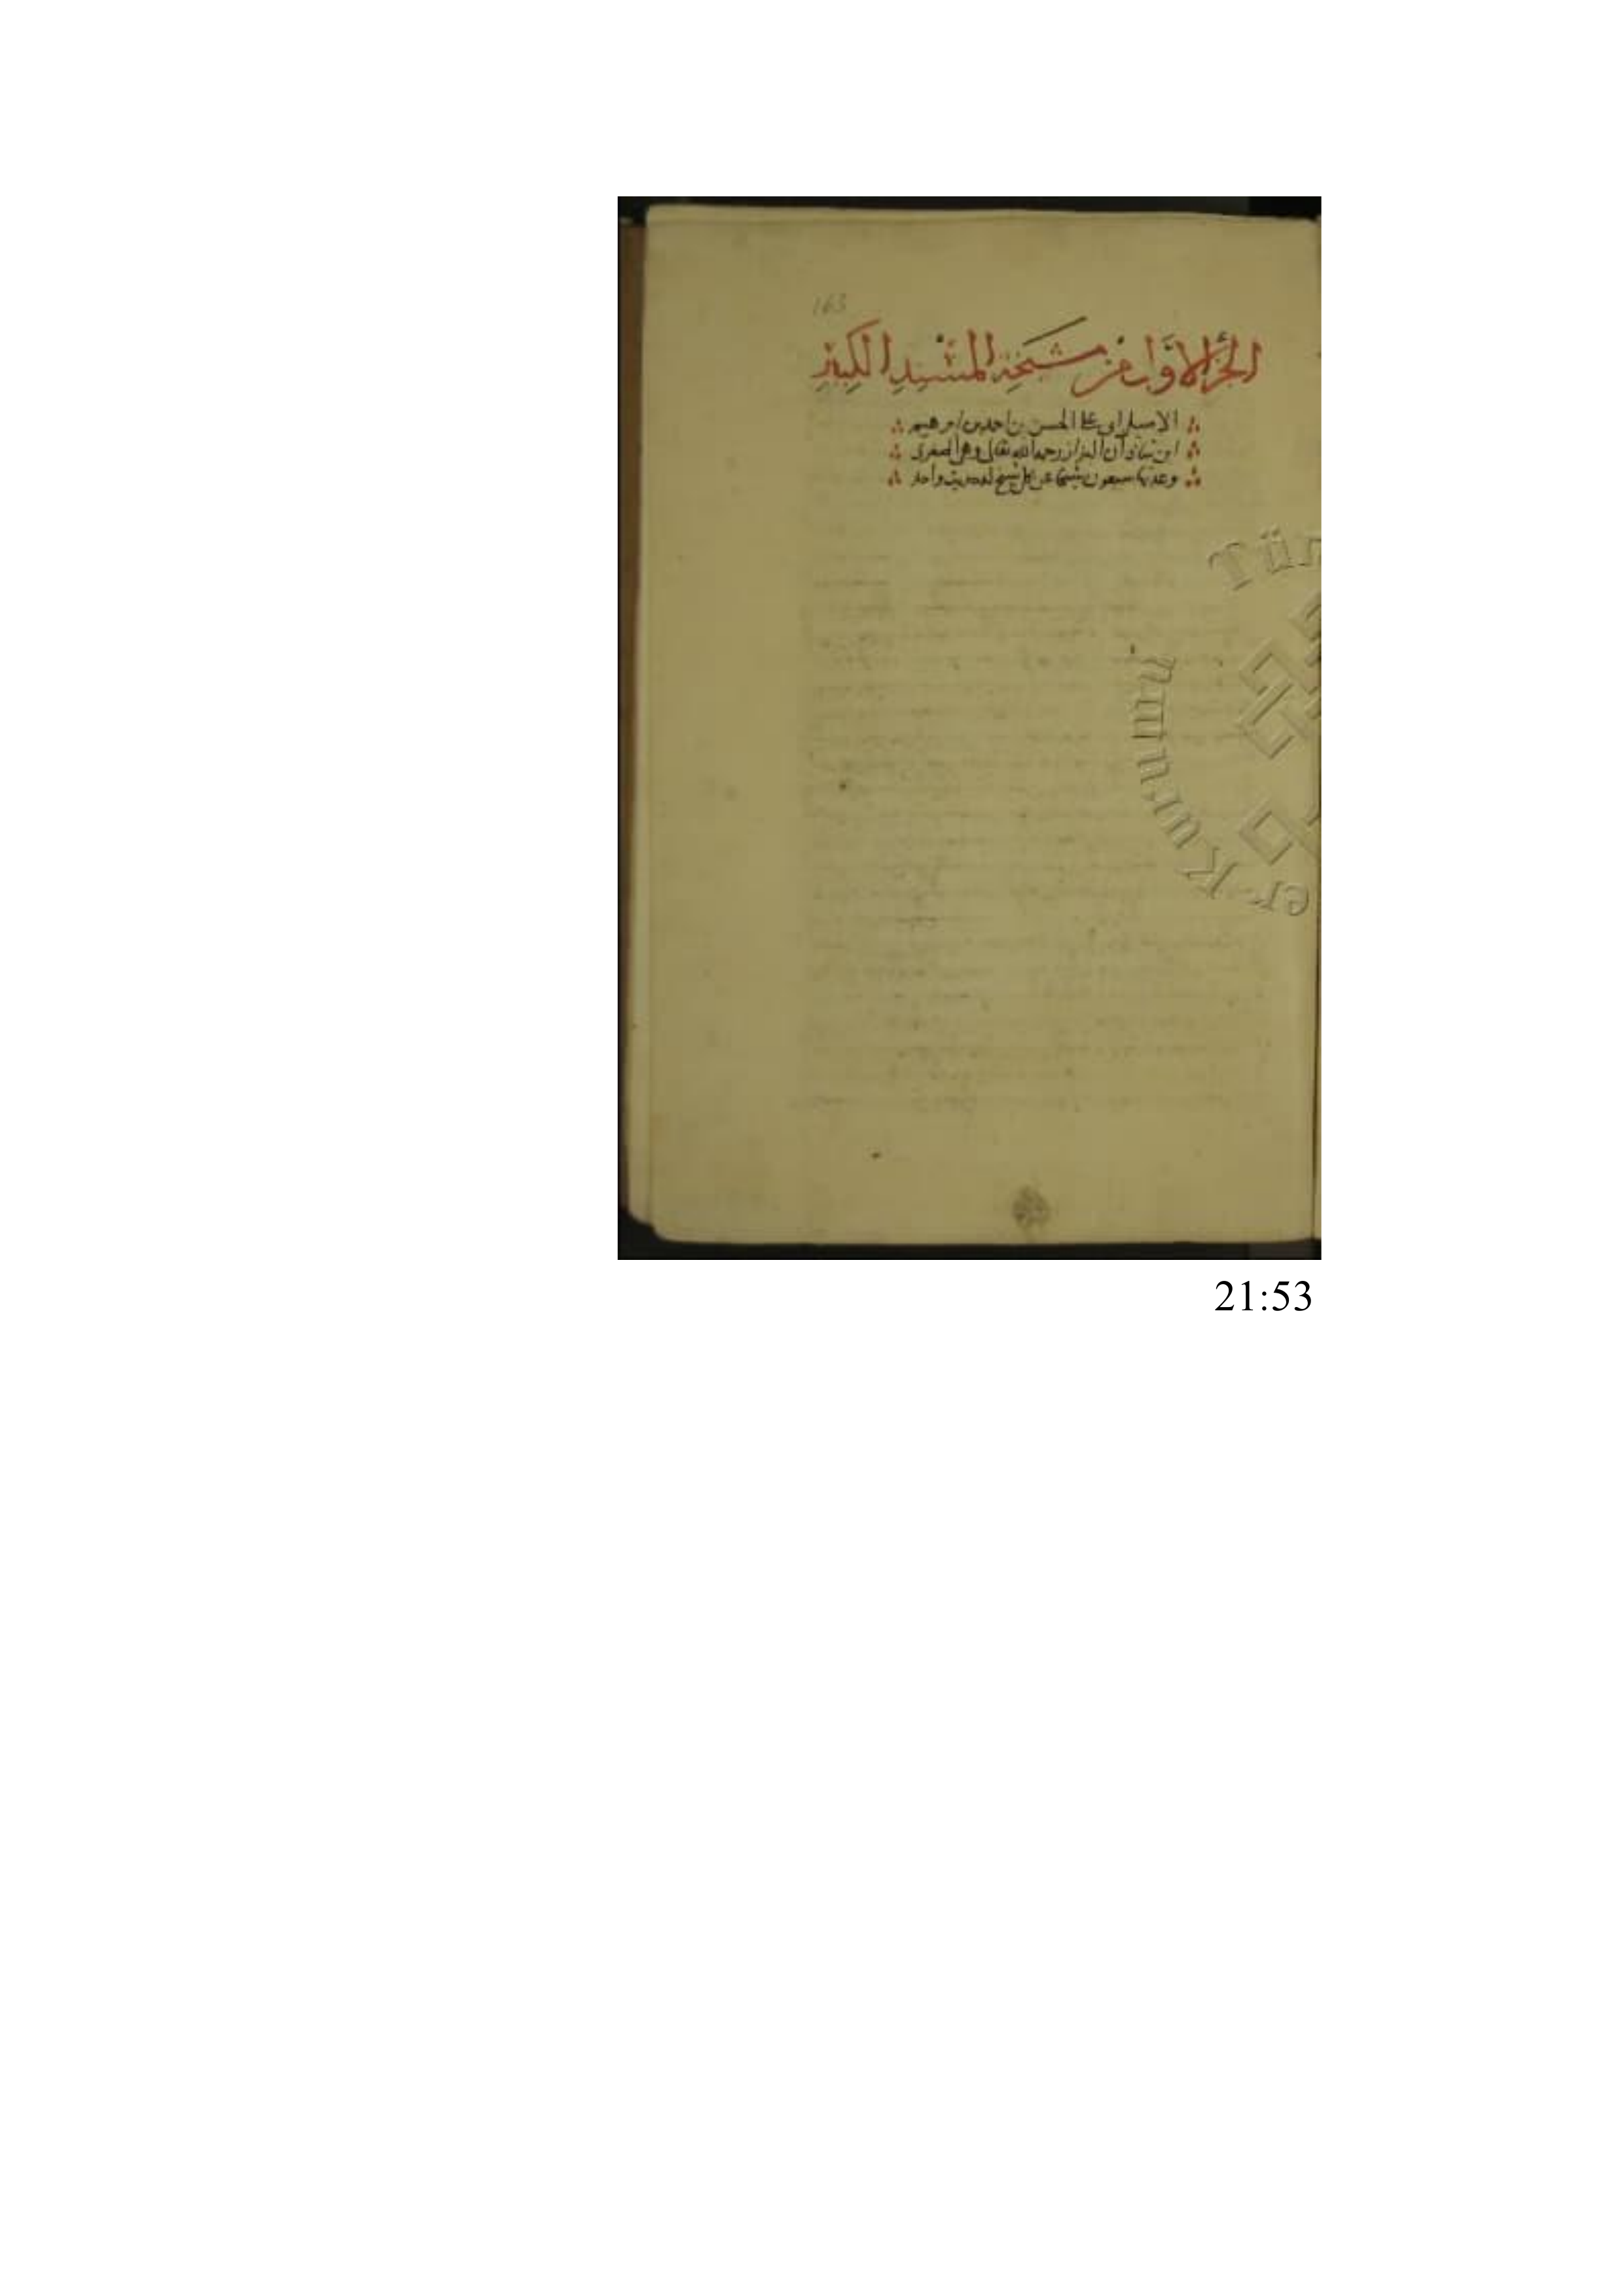 163
الجزء الاول من مشيخة المسند الكبير
الامام ابى على الحسن بن احمد بن ابرهيم
ابن شاذان البزاز رحمه الله تعالى وهى الصغرى
وعدتها سبعون شيخا عن كل شيخ له حديث واحد
Tür
er Kurumu
21:53